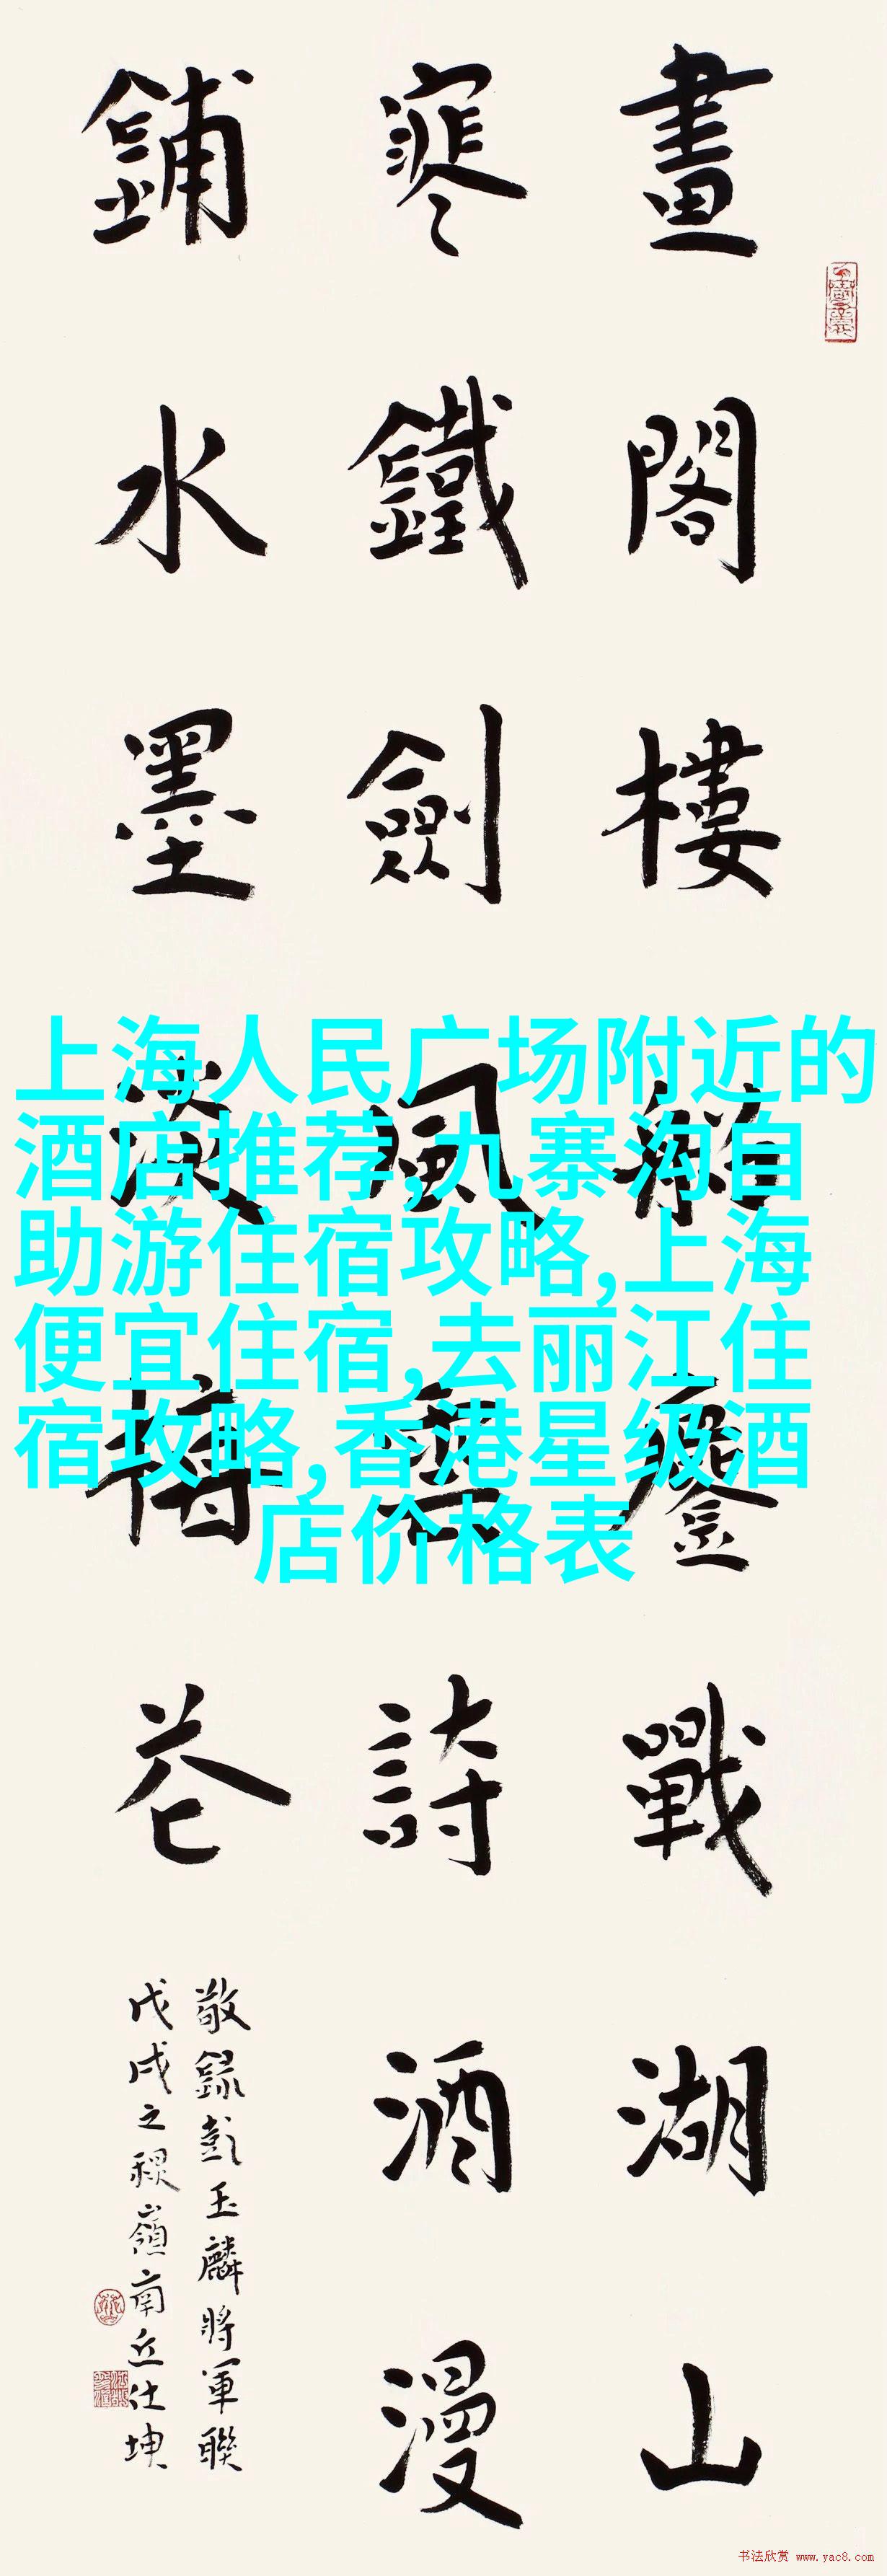 畫閣樓船鏖戰湖山
鐵劍風詩酒漫
鋪水墨花
敬錄彭玉麟將軍聯
戊戌之秋嶺南丘仕坤
上海人民广场附近的
酒店推荐,九寨沟自
助游住宿攻略,上海
便宜住宿,去丽江住
宿攻略,香港星级酒
店价格表
书法欣赏 www.yac8.com